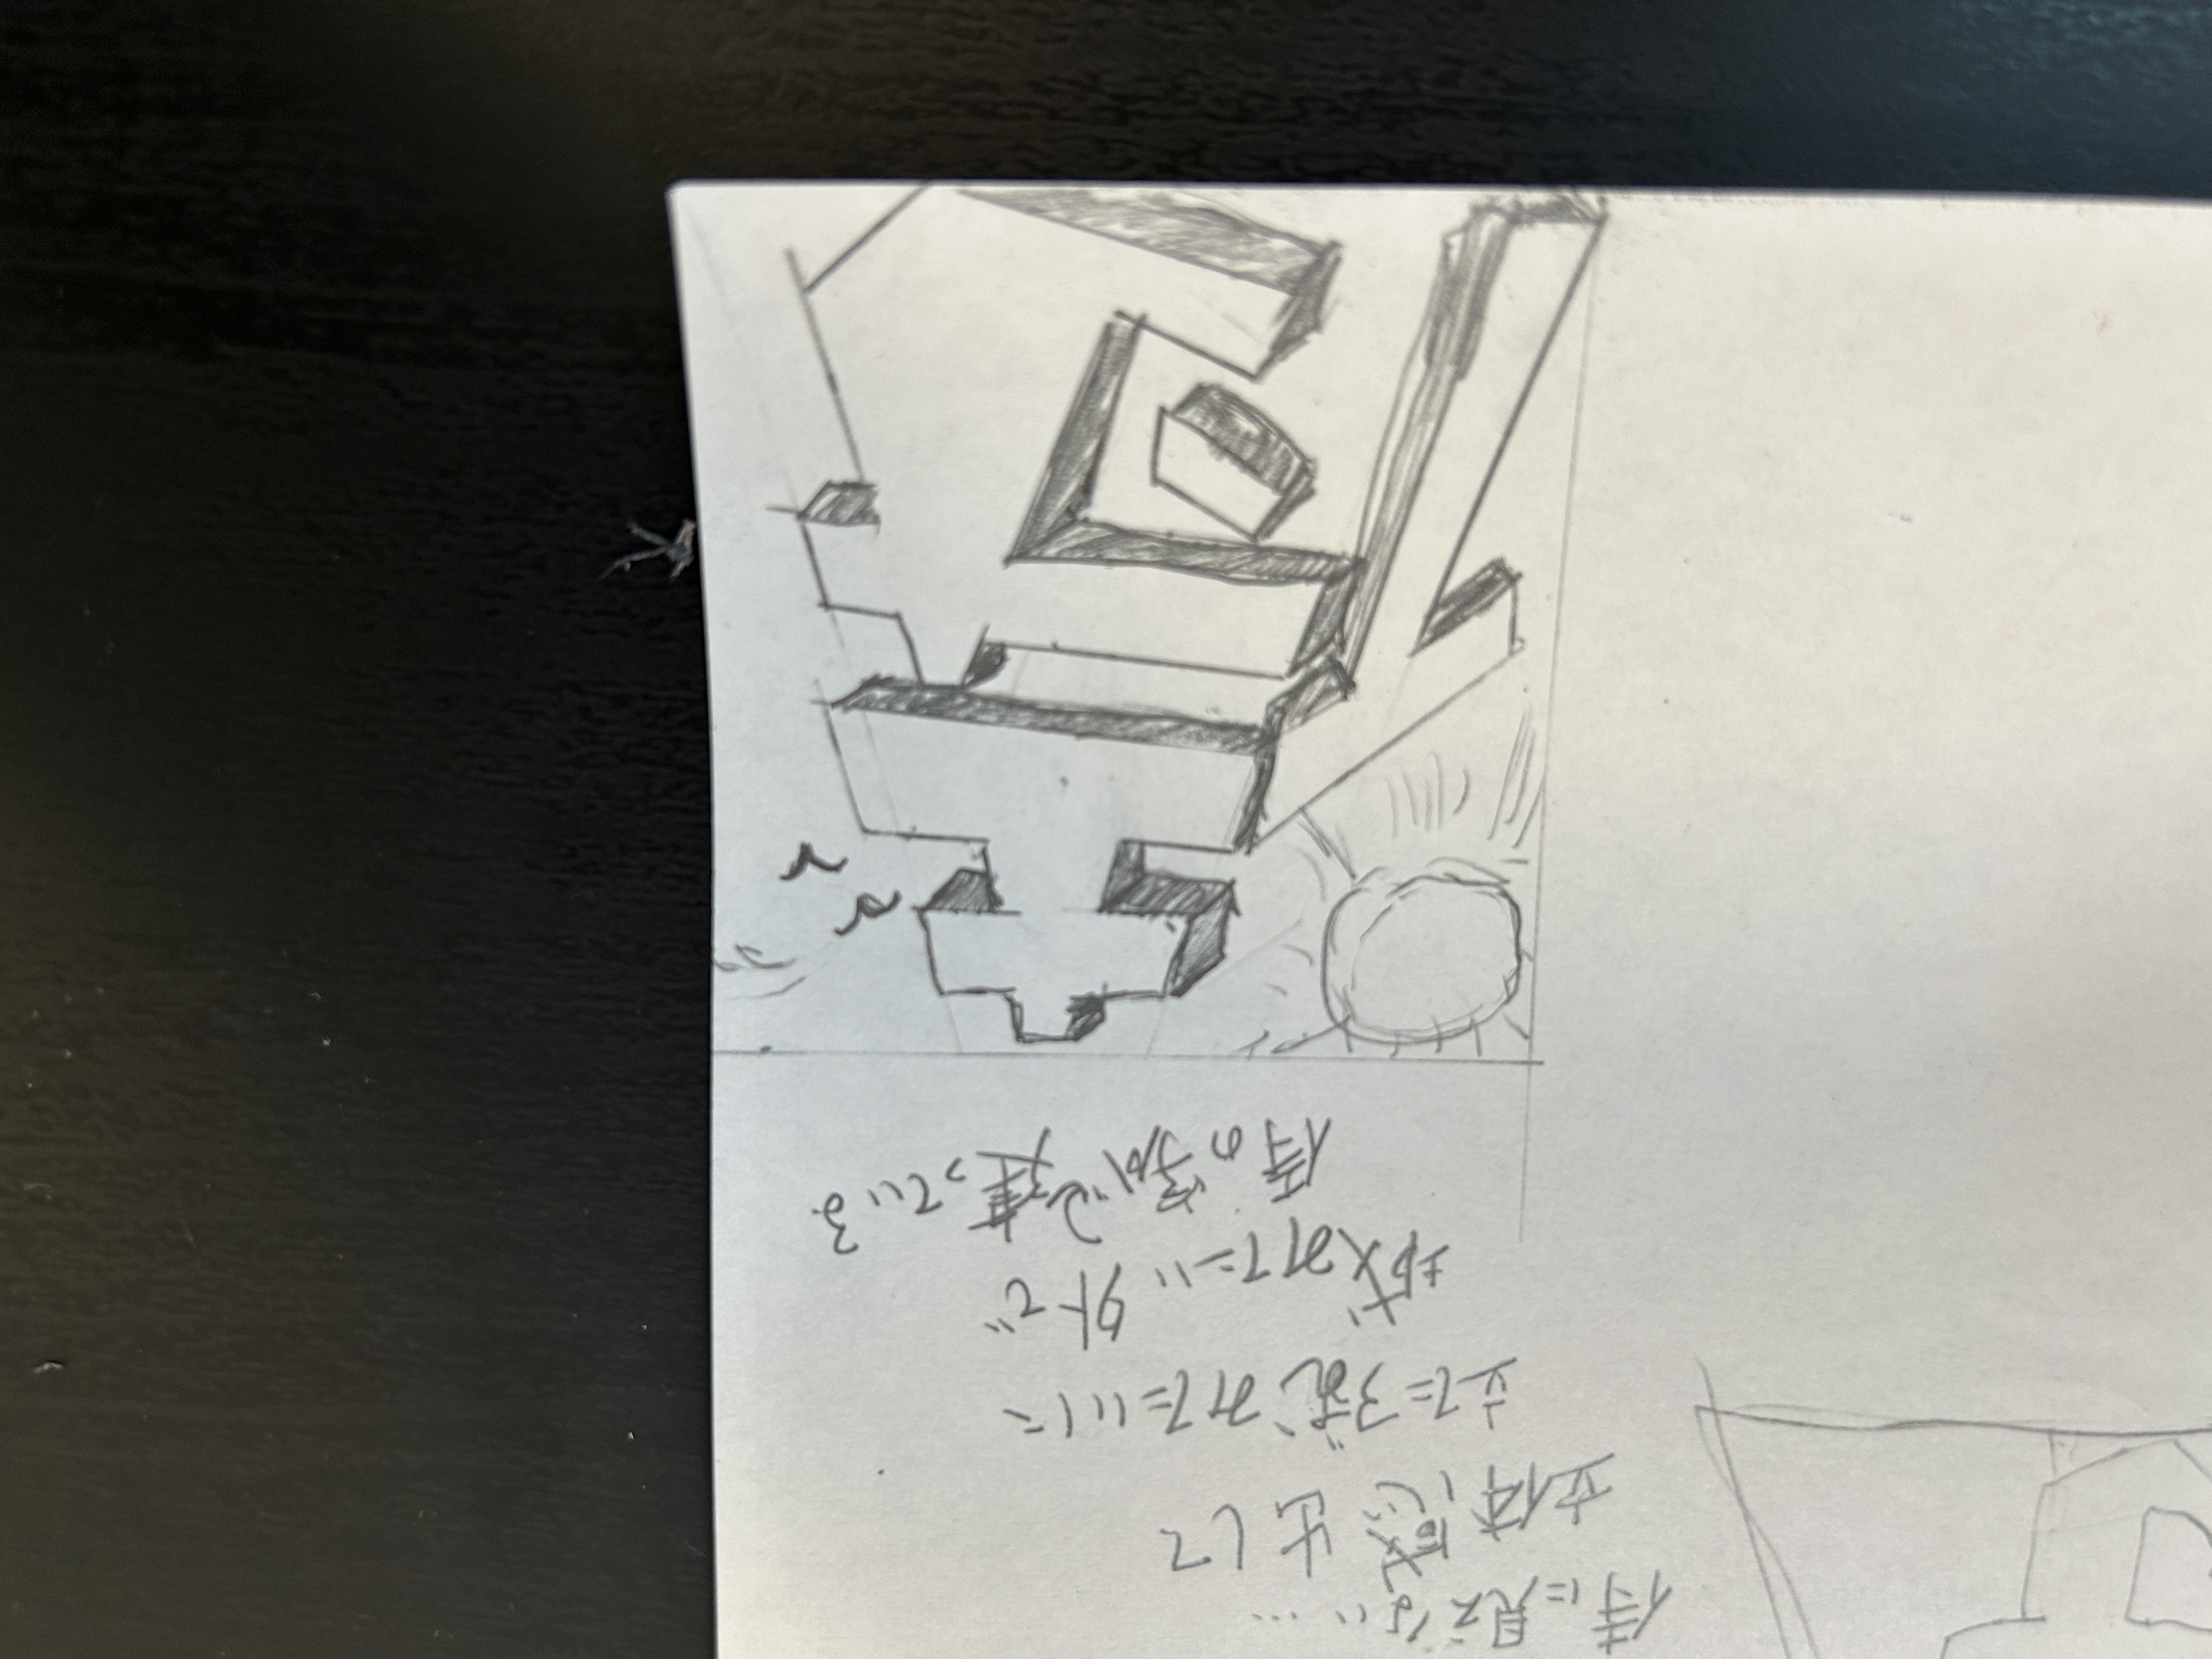 侍に見えない…
立体感出して
立たせるみたいに
城みたい外で
侍の字が建っている
侍